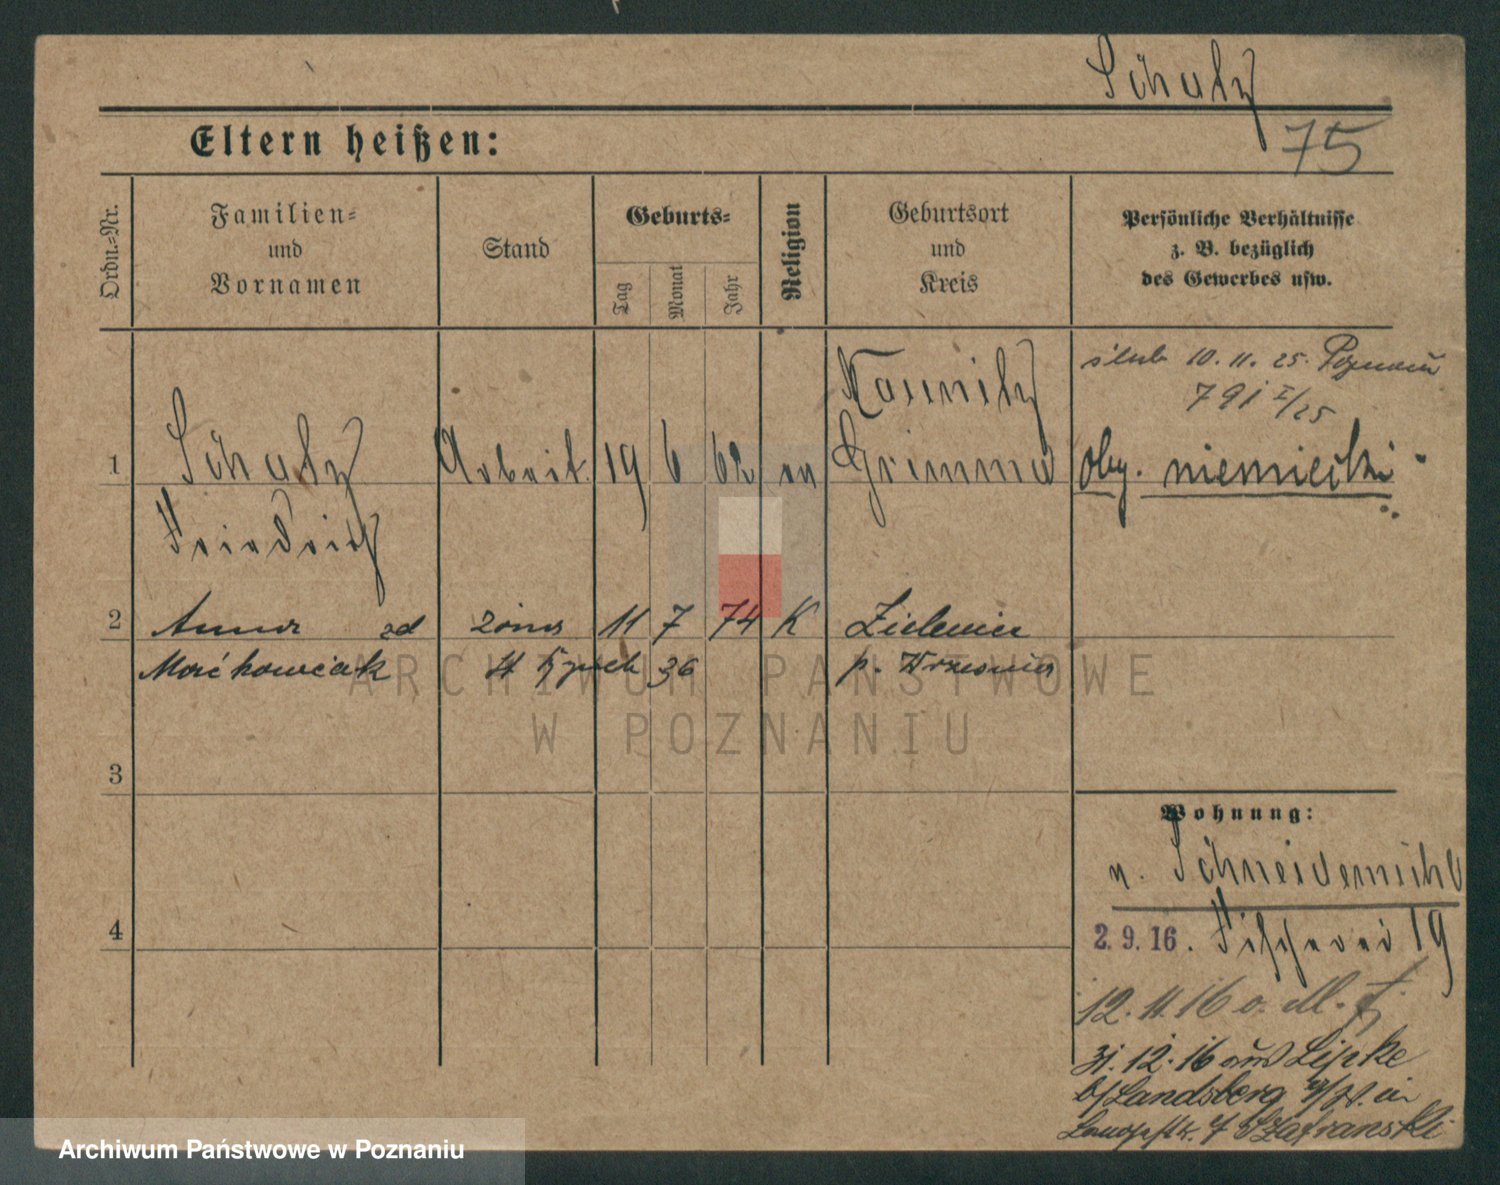 Schulz
75
Eltern heißen:
Ordn.-Nr.
Familien-
und
Vornamen
Stand
Geburts-
Tag
Monat
Jahr
Religion
Geburtsort
und
Kreis
Persönliche Verhältnisse
z. B. bezüglich
des Gewerbes usw.
ślub 10. 11. 25. Poznań
791 I/25
1 Schulz Arbeit. 19 6 62 ev Grimma
oby. niemiecki
Friedrich
2 Anna zd żona 11 7 74 K Zieleniec
Maćkowiak 36 p. Września
3
4
Wohnung:
n. Schneidemühl
2. 9. 16. Fischerei 19
12. 11. 16 o. M. f.
31. 12. 16 aus Lipke
b/Landsberg a/W. in
7 Szafranski
ARCHIWUM PAŃSTWOWE
W POZNANIU
Archiwum Państwowe w Poznaniu